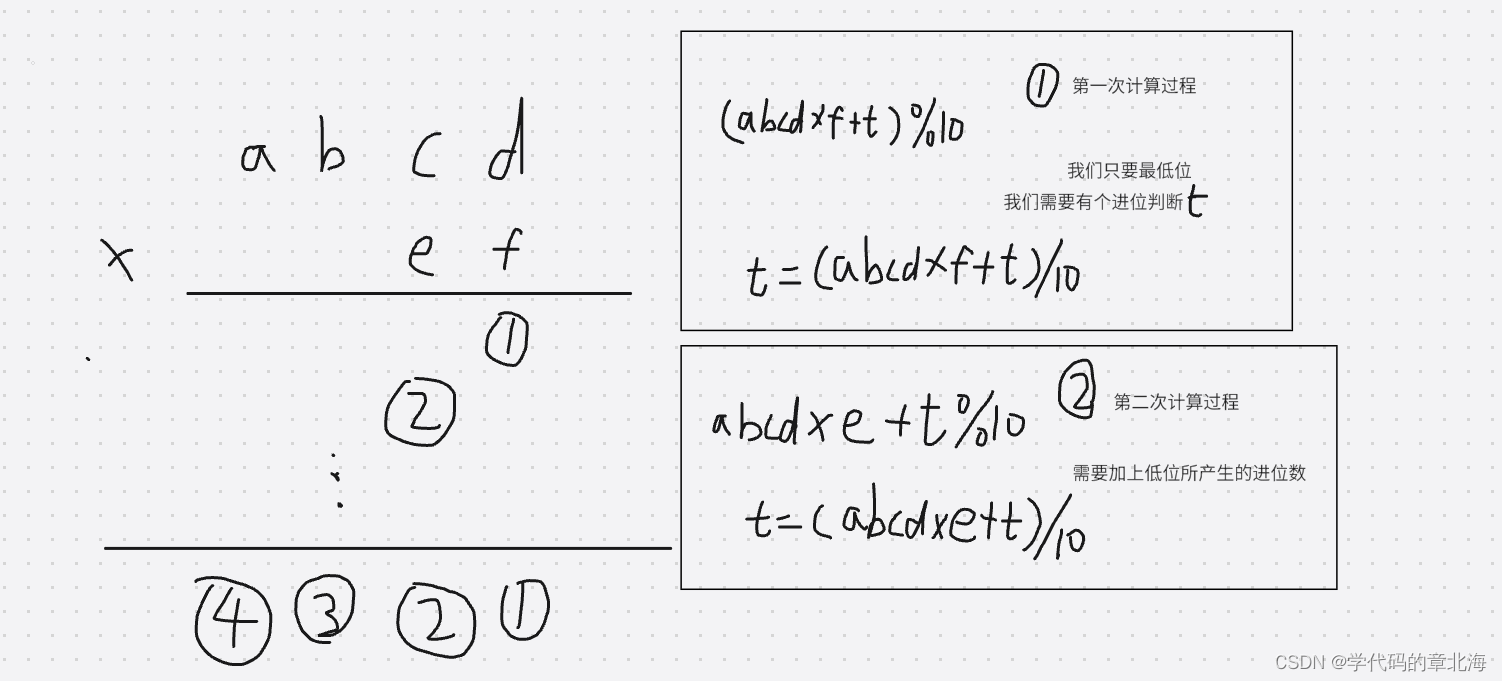 a b c d
× e f
①
②
⋮
④ ③ ② ①
① 第一次计算过程
(abcd×f+t)%10
我们只要最低位
我们需要有个进位判断t
t=(abcd×f+t)/10
② 第二次计算过程
abcd×e+t%10
需要加上低位所产生的进位数
t=(abcd×e+t)/10
CSDN @学代码的章北海